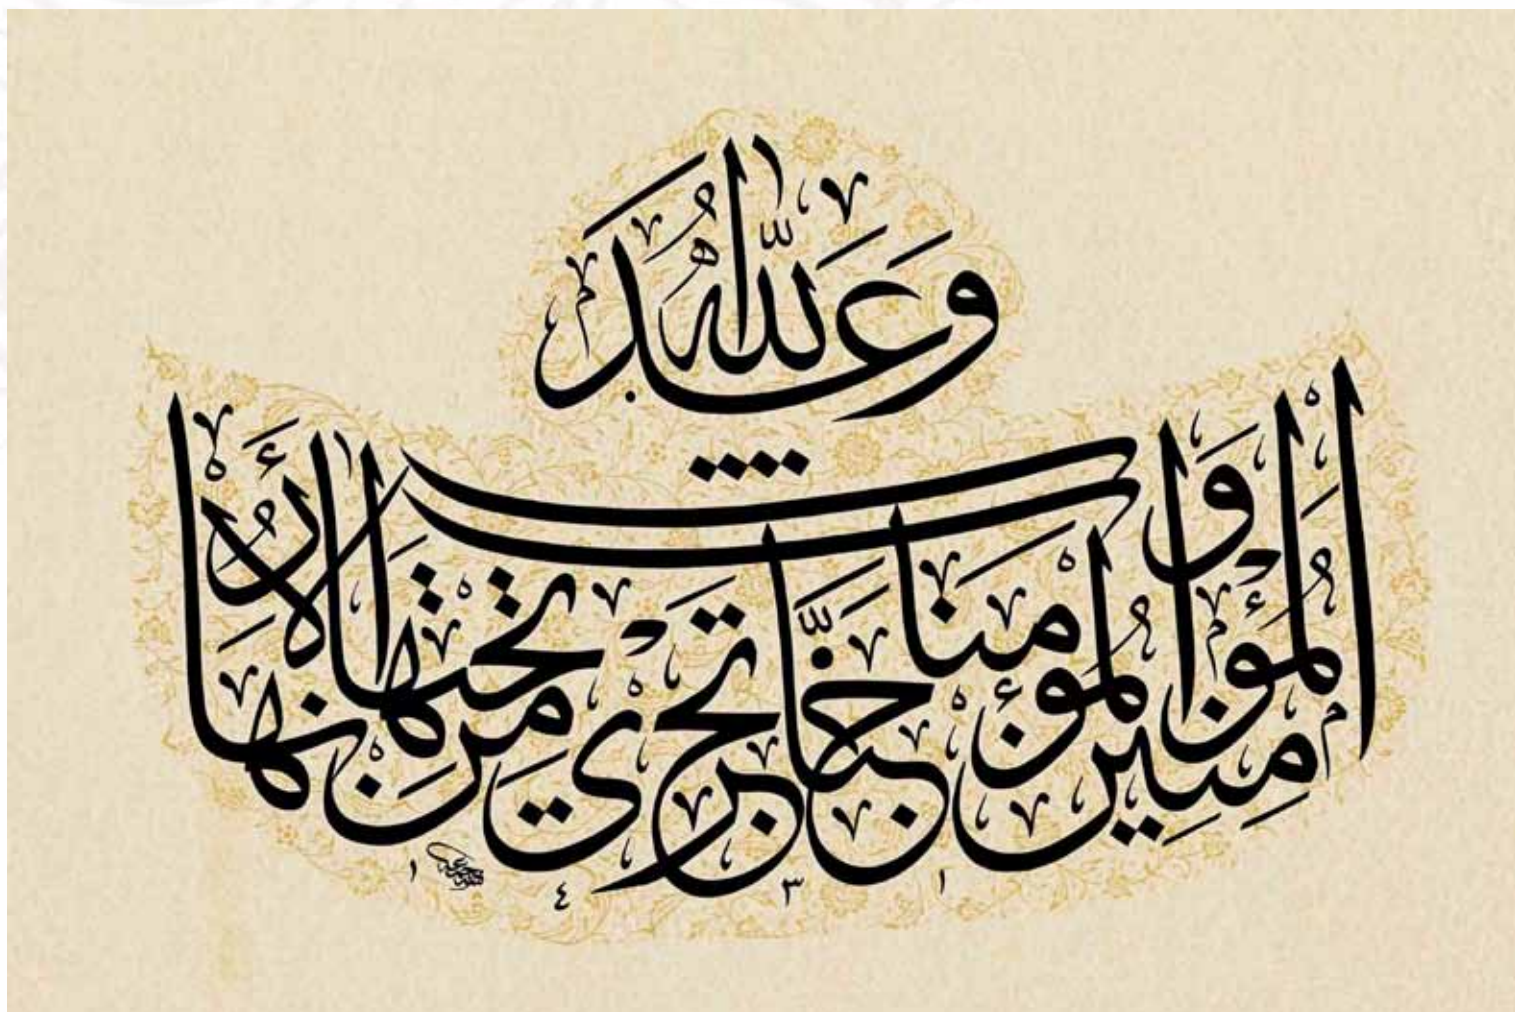 وَعَدَ اللّٰهُ
الْمُؤْمِنِينَ وَالْمُؤْمِنَاتِ جَنَّاتٍ تَجْرِي مِنْ تَحْتِهَا الْأَنْهَارُ
١٤٣١